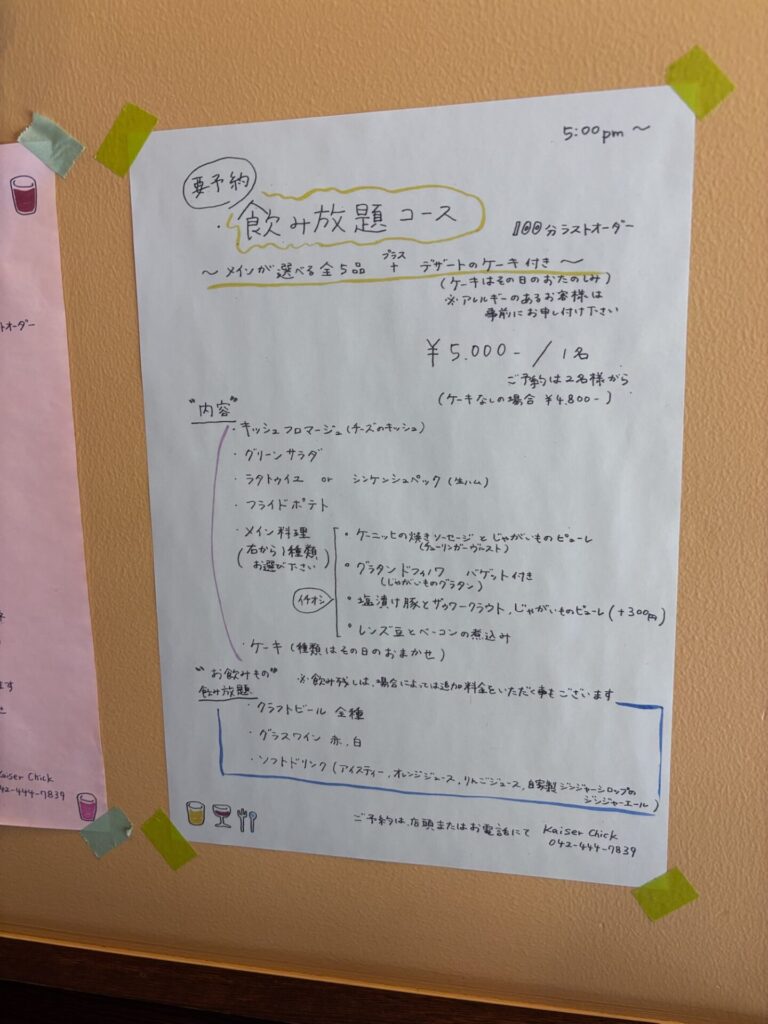 5:00pm ～
要予約
・飲み放題 コース
100分 ラストオーダー
～ メインが選べる全5品 + デザートのケーキ付き ～
プラス
(ケーキはその日のおたのしみ)
※アレルギーのあるお客様は
事前にお申し付け下さい
¥5.000- / 1名
ご予約は2名様から
(ケーキなしの場合 ¥4.800-)
"内容"
・キッシュフロマージュ(チーズのキッシュ)
・グリーンサラダ
・ラタトゥイユ or シンケンシュペック (生ハム)
・フライドポテト
・メイン料理
(右から1種類
お選び下さい)
・ケーニッヒの焼きソーセージとじゃがいものピューレ
(チューリンガーヴルスト)
・グラタンドフィノワ バゲット付き
(じゃがいものグラタン)
イチオシ
・塩漬け豚とザウワークラウト,じゃがいものピューレ(+300円)
・レンズ豆とベーコンの煮込み
・ケーキ (種類はその日のおまかせ)
"お飲みもの"
飲み放題
※飲み残しは、場合によっては追加料金をいただく事もございます
・クラフトビール 全種
・グラスワイン 赤,白
・ソフトドリンク(アイスティー,オレンジジュース,りんごジュース,自家製ジンジャーシロップの
ジンジャーエール)
ご予約は、店頭またはお電話にて Kaiser Chick
042-444-7839
トオーダー
ます
Kaiser Chick
042-444-7839